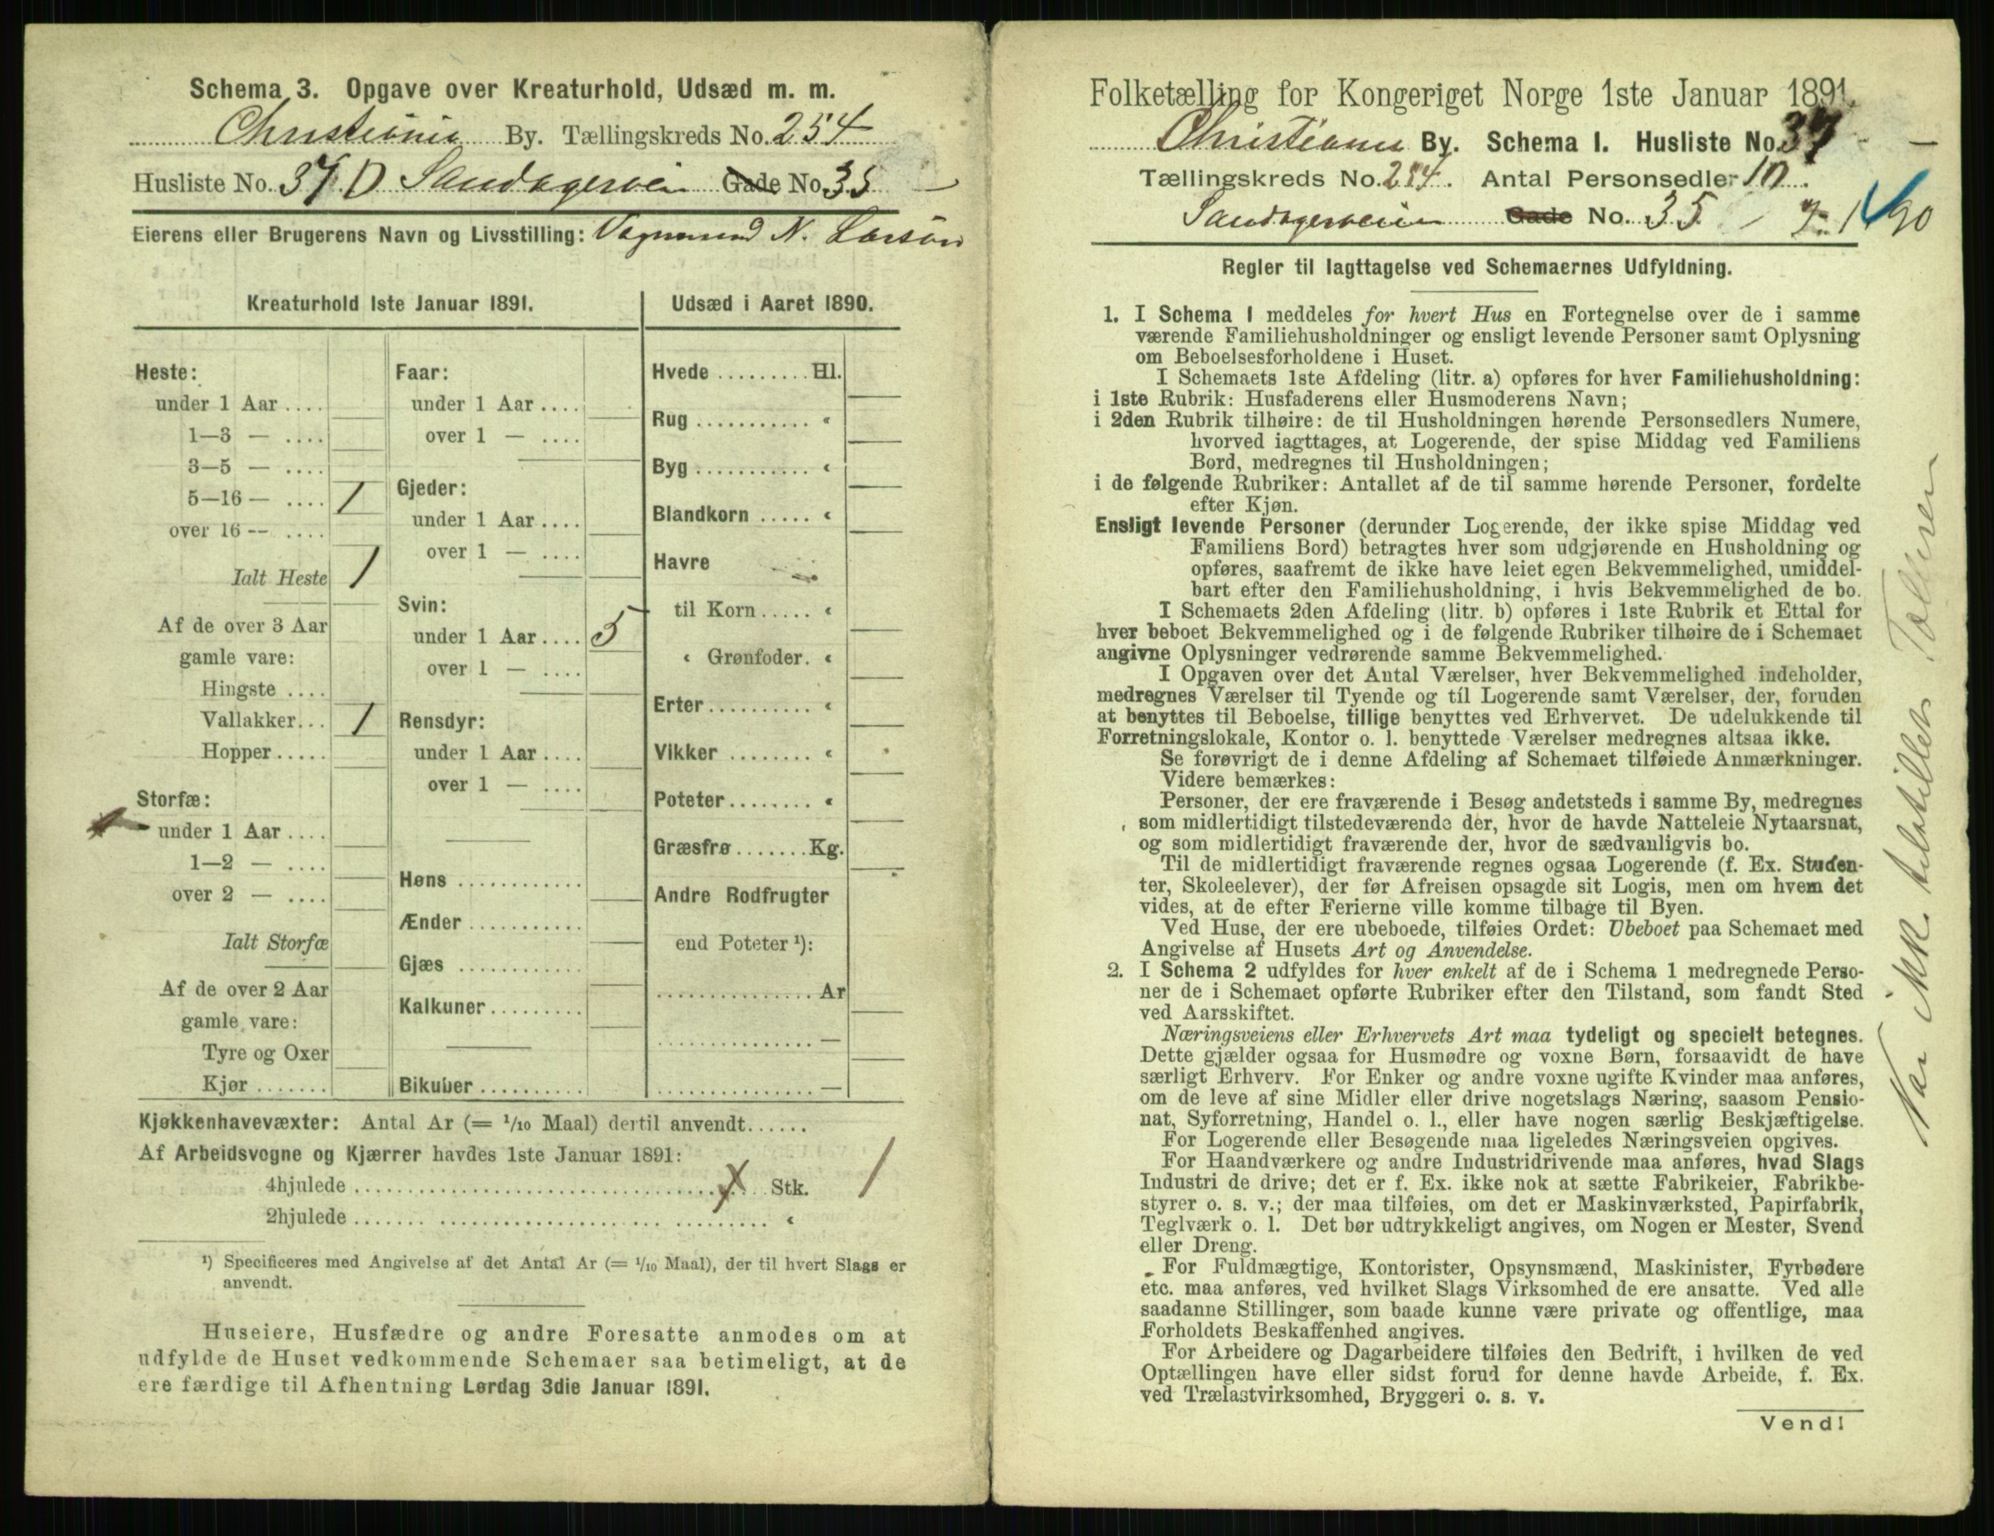 Schema 3. Opgave over Kreaturhold, Udsæd m. m.
Christiania By. Tællingskreds No. 254
Husliste No. 37 D Sandagerveien Gade No. 35
Eierens eller Brugerens Navn og Livsstilling: N. Larsen
Kreaturhold 1ste Januar 1891.
Heste:
under 1 Aar ....
1—3 — ....
3—5 — ....
5—16 — .... 1
over 16 — ....
Ialt Heste 1
Af de over 3 Aar
gamle vare:
Hingste ....
Vallakker... 1
Hopper .....
Storfæ:
under 1 Aar ....
1—2 — ....
over 2 — ....
Ialt Storfæ
Af de over 2 Aar
gamle vare:
Tyre og Oxer
Kjør .......
Faar:
under 1 Aar ....
over 1 — ....
Gjeder:
under 1 Aar ....
over 1 — ....
Svin:
under 1 Aar .... 5
over 1 — ....
Rensdyr:
under 1 Aar ....
over 1 — ....
Høns ............
Ænder ...........
Gjæs ............
Kalkuner.........
Bikuber ..........
Udsæd i Aaret 1890.
Hvede .........Hl.
Rug ........... “
Byg ........... “
Blandkorn ..... “
Havre
til Korn ..... “
“ Grønfoder. “
Erter.......... “
Vikker ........ “
Poteter........ “
Græsfrø .......Kg.
Andre Rodfrugter
end Poteter ¹):
............... Ar
............... —
............... —
Kjøkkenhavevæxter: Antal Ar (= 1/10 Maal) dertil anvendt......
Af Arbeidsvogne og Kjærrer havdes 1ste Januar 1891:
4hjulede .................................... Stk. 1
2hjulede .................................... “
¹) Specificeres med Angivelse af det Antal Ar (= 1/10 Maal), der til hvert Slags er
anvendt.
Huseiere, Husfædre og andre Foresatte anmodes om at
udfylde de Huset vedkommende Schemaer saa betimeligt, at de
ere færdige til Afhentning Lørdag 3die Januar 1891.
Folketælling for Kongeriget Norge 1ste Januar 1891.
Christiania By. Schema I. Husliste No. 37
Tællingskreds No. 254. Antal Personsedler 10.
Sandagerveien Gade No. 35
Regler til Iagttagelse ved Schemaernes Udfyldning.
1. I Schema 1 meddeles for hvert Hus en Fortegnelse over de i samme
værende Familiehusholdninger og ensligt levende Personer samt Oplysning
om Beboelsesforholdene i Huset.
I Schemaets 1ste Afdeling (litr. a) opføres for hver Familiehusholdning:
i 1ste Rubrik: Husfaderens eller Husmoderens Navn;
i 2den Rubrik tilhøire: de til Husholdningen hørende Personsedlers Numere,
hvorved iagttages, at Logerende, der spise Middag ved Familiens
Bord, medregnes til Husholdningen;
i de følgende Rubriker: Antallet af de til samme hørende Personer, fordelte
efter Kjøn.
Ensligt levende Personer (derunder Logerende, der ikke spise Middag ved
Familiens Bord) betragtes hver som udgjørende en Husholdning og
opføres, saafremt de ikke have leiet egen Bekvemmelighed, umiddel-
bart efter den Familiehusholdning, i hvis Bekvemmelighed de bo.
I Schemaets 2den Afdeling (litr. b) opføres i 1ste Rubrik et Ettal for
hver beboet Bekvemmelighed og i de følgende Rubriker tilhøire de i Schemaet
angivne Oplysninger vedrørende samme Bekvemmelighed.
I Opgaven over det Antal Værelser, hver Bekvemmelighed indeholder,
medregnes Værelser til Tyende og til Logerende samt Værelser, der, foruden
at benyttes til Beboelse, tillige benyttes ved Erhvervet. De udelukkende til
Forretningslokale, Kontor o. l. benyttede Værelser medregnes altsaa ikke.
Se forøvrigt de i denne Afdeling af Schemaet tilføiede Anmærkninger.
Videre bemærkes:
Personer, der ere fraværende i Besøg andetsteds i samme By, medregnes
som midlertidigt tilstedeværende der, hvor de havde Natteleie Nytaarsnat,
og som midlertidigt fraværende der, hvor de sædvanligvis bo.
Til de midlertidigt fraværende regnes ogsaa Logerende (f. Ex. Studen-
ter, Skoleelever), der før Afreisen opsagde sit Logis, men om hvem det
vides, at de efter Ferierne ville komme tilbage til Byen.
Ved Huse, der ere ubeboede, tilføies Ordet: Ubeboet paa Schemaet med
Angivelse af Husets Art og Anvendelse.
2. I Schema 2 udfyldes for hver enkelt af de i Schema 1 medregnede Perso-
ner de i Schemaet opførte Rubriker efter den Tilstand, som fandt Sted
ved Aarsskiftet.
Næringsveiens eller Erhvervets Art maa tydeligt og specielt betegnes.
Dette gjælder ogsaa for Husmødre og voxne Børn, forsaavidt de have
særligt Erhverv. For Enker og andre voxne ugifte Kvinder maa anføres,
om de leve af sine Midler eller drive nogetslags Næring, saasom Pensio-
nat, Syforretning, Handel o. l., eller have nogen særlig Beskjæftigelse.
For Logerende eller Besøgende maa ligeledes Næringsveien opgives.
For Haandværkere og andre Industridrivende maa anføres, hvad Slags
Industri de drive; det er f. Ex. ikke nok at sætte Fabrikeier, Fabrikbe-
styrer o. s. v.; der maa tilføies, om det er Maskinværksted, Papirfabrik,
Teglværk o. l. Det bør udtrykkeligt angives, om Nogen er Mester, Svend
eller Dreng.
For Fuldmægtige, Kontorister, Opsynsmænd, Maskinister, Fyrbødere
etc. maa anføres, ved hvilket Slags Virksomhed de ere ansatte. Ved alle
saadanne Stillinger, som baade kunne være private og offentlige, maa
Forholdets Beskaffenhed angives.
For Arbeidere og Dagarbeidere tilføies den Bedrift, i hvilken de ved
Optællingen have eller sidst forud for denne havde Arbeide, f. Ex.
ved Trælastvirksomhed, Bryggeri o. s. v.
Vend!
Var ikke tilstillet Tælleren